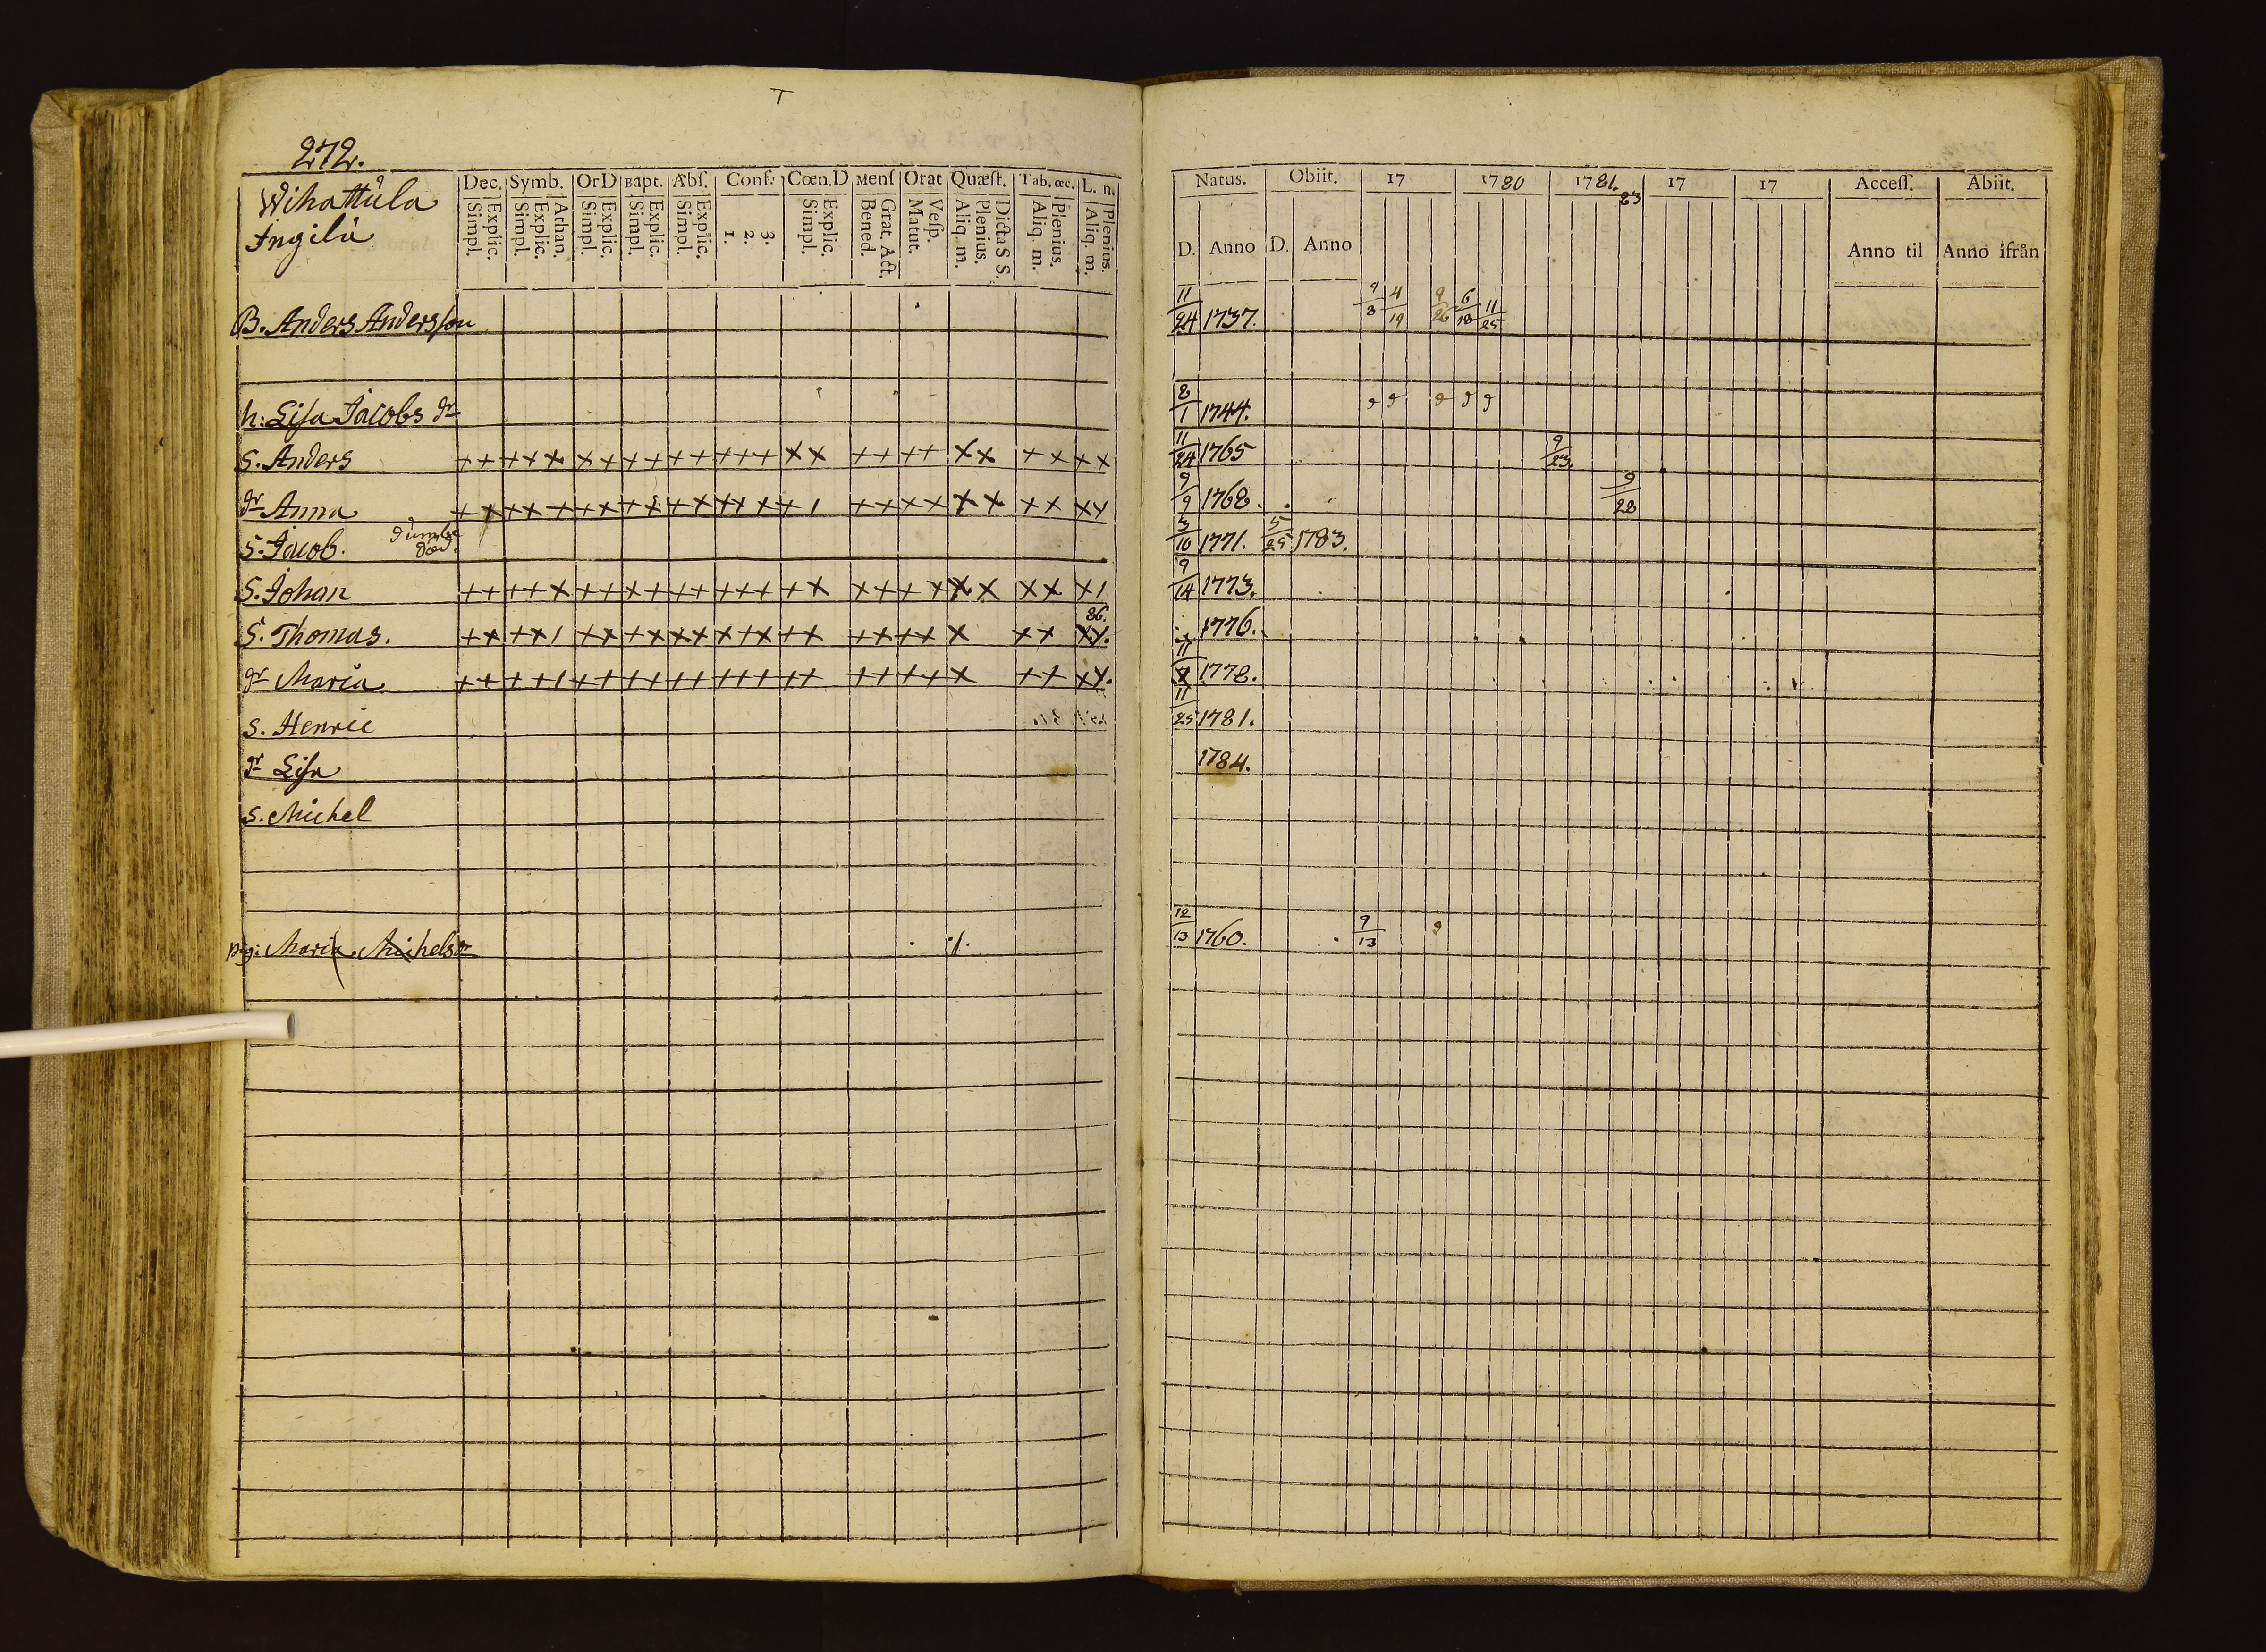 T
272.
Wihattula
Ingilä
Dec. Symb. OrD Bapt. Abſ. Conf. Cœn.D Menſ Orat Quæſt. Tab. œc. L. n.
Simpl. Explic. Simpl. Explic. Athan. Simpl. Explic. Simpl. Explic. Simpl. Explic. 1. 2. 3. Simpl. Explic. Bened. Grat. Act. Matut. Veſp. Aliq. m. Plenius. Dicta S S. Aliq. m. Plenius. Aliq. m. Plenius.
Natus. Obiit. 17 1780 1781. 83 17 17 Acceſſ. Abiit.
D. Anno D. Anno Anno til Anno ifrån
B. Anders Andersson 11/24 1737. 9/3 4/19 9/26 6/18 11/25
h: Lisa Jacobs dr 8/1 1744.
S. Anders ++ +++ ++ ++ ++ +++ ×× ++ ++ ×× ++ ×× 11/24 1765 9/23.
dr Anna ++ +++ ++ ++ ++ +++ + 1 ++ ×× ×× ×× ×× 9/9 1768. 9/28
S. Jacob. dumbe död. 3/10 1771. 5/25 1783.
S. Johan ++ +++ ++ ++ ++ +++ ++ ++ ++ ×× ×× ×1 9/14 1773.
86.
S. Thomas. ++ ++1 ++ ++ ×× +++ ++ ++ ++ × ++ ××. 1776.
dr Maria ++ ++1 ++ ++ ++ +++ ++ ++ ++ × ++ ××. 11/7 1778.
S. Henric 11/25 1781.
dr Lisa 1784.
S. Michel
pig: Maria Michelsdr 12/13 1760. 9/13